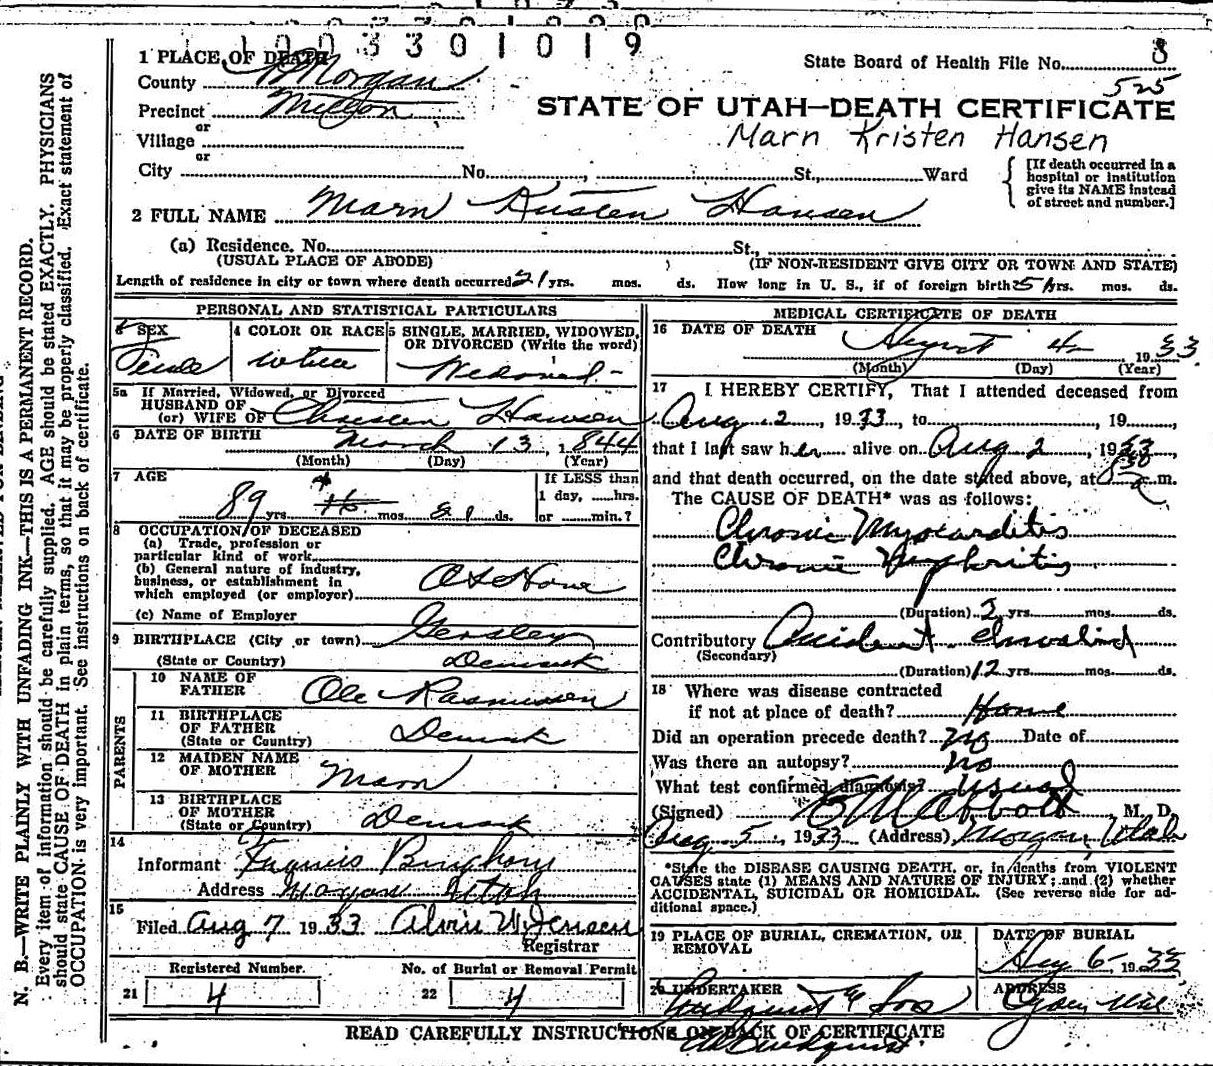 1003301019
1 PLACE OF DEATH
County Morgan
Precinct Milton
or
Village
or
City No. St., Ward
State Board of Health File No. 8
525
STATE OF UTAH—DEATH CERTIFICATE
Marn Kristen Hansen
[If death occurred in a hospital or institution give its NAME instead of street and number.]
2 FULL NAME Marn Kristen Hansen
(a) Residence. No. St.,
(USUAL PLACE OF ABODE) (IF NON-RESIDENT GIVE CITY OR TOWN AND STATE)
Length of residence in city or town where death occurred 21 yrs. mos. ds. How long in U. S., if of foreign birth yrs. mos. ds.
PERSONAL AND STATISTICAL PARTICULARS
3 SEX
4 COLOR OR RACE
5 SINGLE, MARRIED, WIDOWED, OR DIVORCED (Write the word)
Female white Widowed
5a If Married, Widowed, or Divorced
HUSBAND OF
(or) WIFE OF Christen Hansen
6 DATE OF BIRTH March 13, 1844
(Month) (Day) (Year)
7 AGE
If LESS than
1 day, hrs.
or min.?
89 yrs. 4 mos. 21 ds.
8 OCCUPATION OF DECEASED
(a) Trade, profession or
particular kind of work
(b) General nature of industry,
business, or establishment in
which employed (or employer) At Home
(c) Name of Employer
9 BIRTHPLACE (City or town)
(State or Country) Denmark
PARENTS
10 NAME OF
FATHER Ole Rasmussen
11 BIRTHPLACE
OF FATHER
(State or Country) Denmark
12 MAIDEN NAME
OF MOTHER Marn
13 BIRTHPLACE
OF MOTHER
(State or Country) Denmark
14
Informant Francis
Address Morgan Utah
15
Filed Aug 7 1933 Alvin W. Jensen
Registrar
Registered Number.
No. of Burial or Removal Permit
21 4
22 4
MEDICAL CERTIFICATE OF DEATH
16 DATE OF DEATH
August 4 1933
(Month) (Day) (Year)
17 I HEREBY CERTIFY, That I attended deceased from
Aug 2, 1933, to , 19
that I last saw her alive on Aug 2, 1933
and that death occurred, on the date stated above, at 830 a m.
The CAUSE OF DEATH* was as follows:
Chronic Myocarditis
Chronic Nephritis
(Duration) 2 yrs. mos. ds.
Contributory Accident Invalid
(Secondary)
(Duration) 12 yrs. mos. ds.
18 Where was disease contracted
if not at place of death? Home
Did an operation precede death? No Date of
Was there an autopsy? no
What test confirmed diagnosis? usual
(Signed) Abbott M. D.
Aug 5, 1933 (Address) Morgan, Utah
*State the DISEASE CAUSING DEATH, or, in deaths from VIOLENT
CAUSES state (1) MEANS AND NATURE OF INJURY; and (2) whether
ACCIDENTAL, SUICIDAL OR HOMICIDAL. (See reverse side for ad-
ditional space.)
19 PLACE OF BURIAL, CREMATION, OR
REMOVAL
DATE OF BURIAL
Aug 6 1933
20 UNDERTAKER
ADDRESS
Lindquist & Sons Ogden Utah
READ CAREFULLY INSTRUCTIONS ON BACK OF CERTIFICATE
Lindquist
N. B.—WRITE PLAINLY WITH UNFADING INK—THIS IS A PERMANENT RECORD.
Every item of information should be carefully supplied. AGE should be stated EXACTLY. PHYSICIANS
should state CAUSE OF DEATH in plain terms, so that it may be properly classified. Exact statement of
OCCUPATION is very important. See instructions on back of certificate.